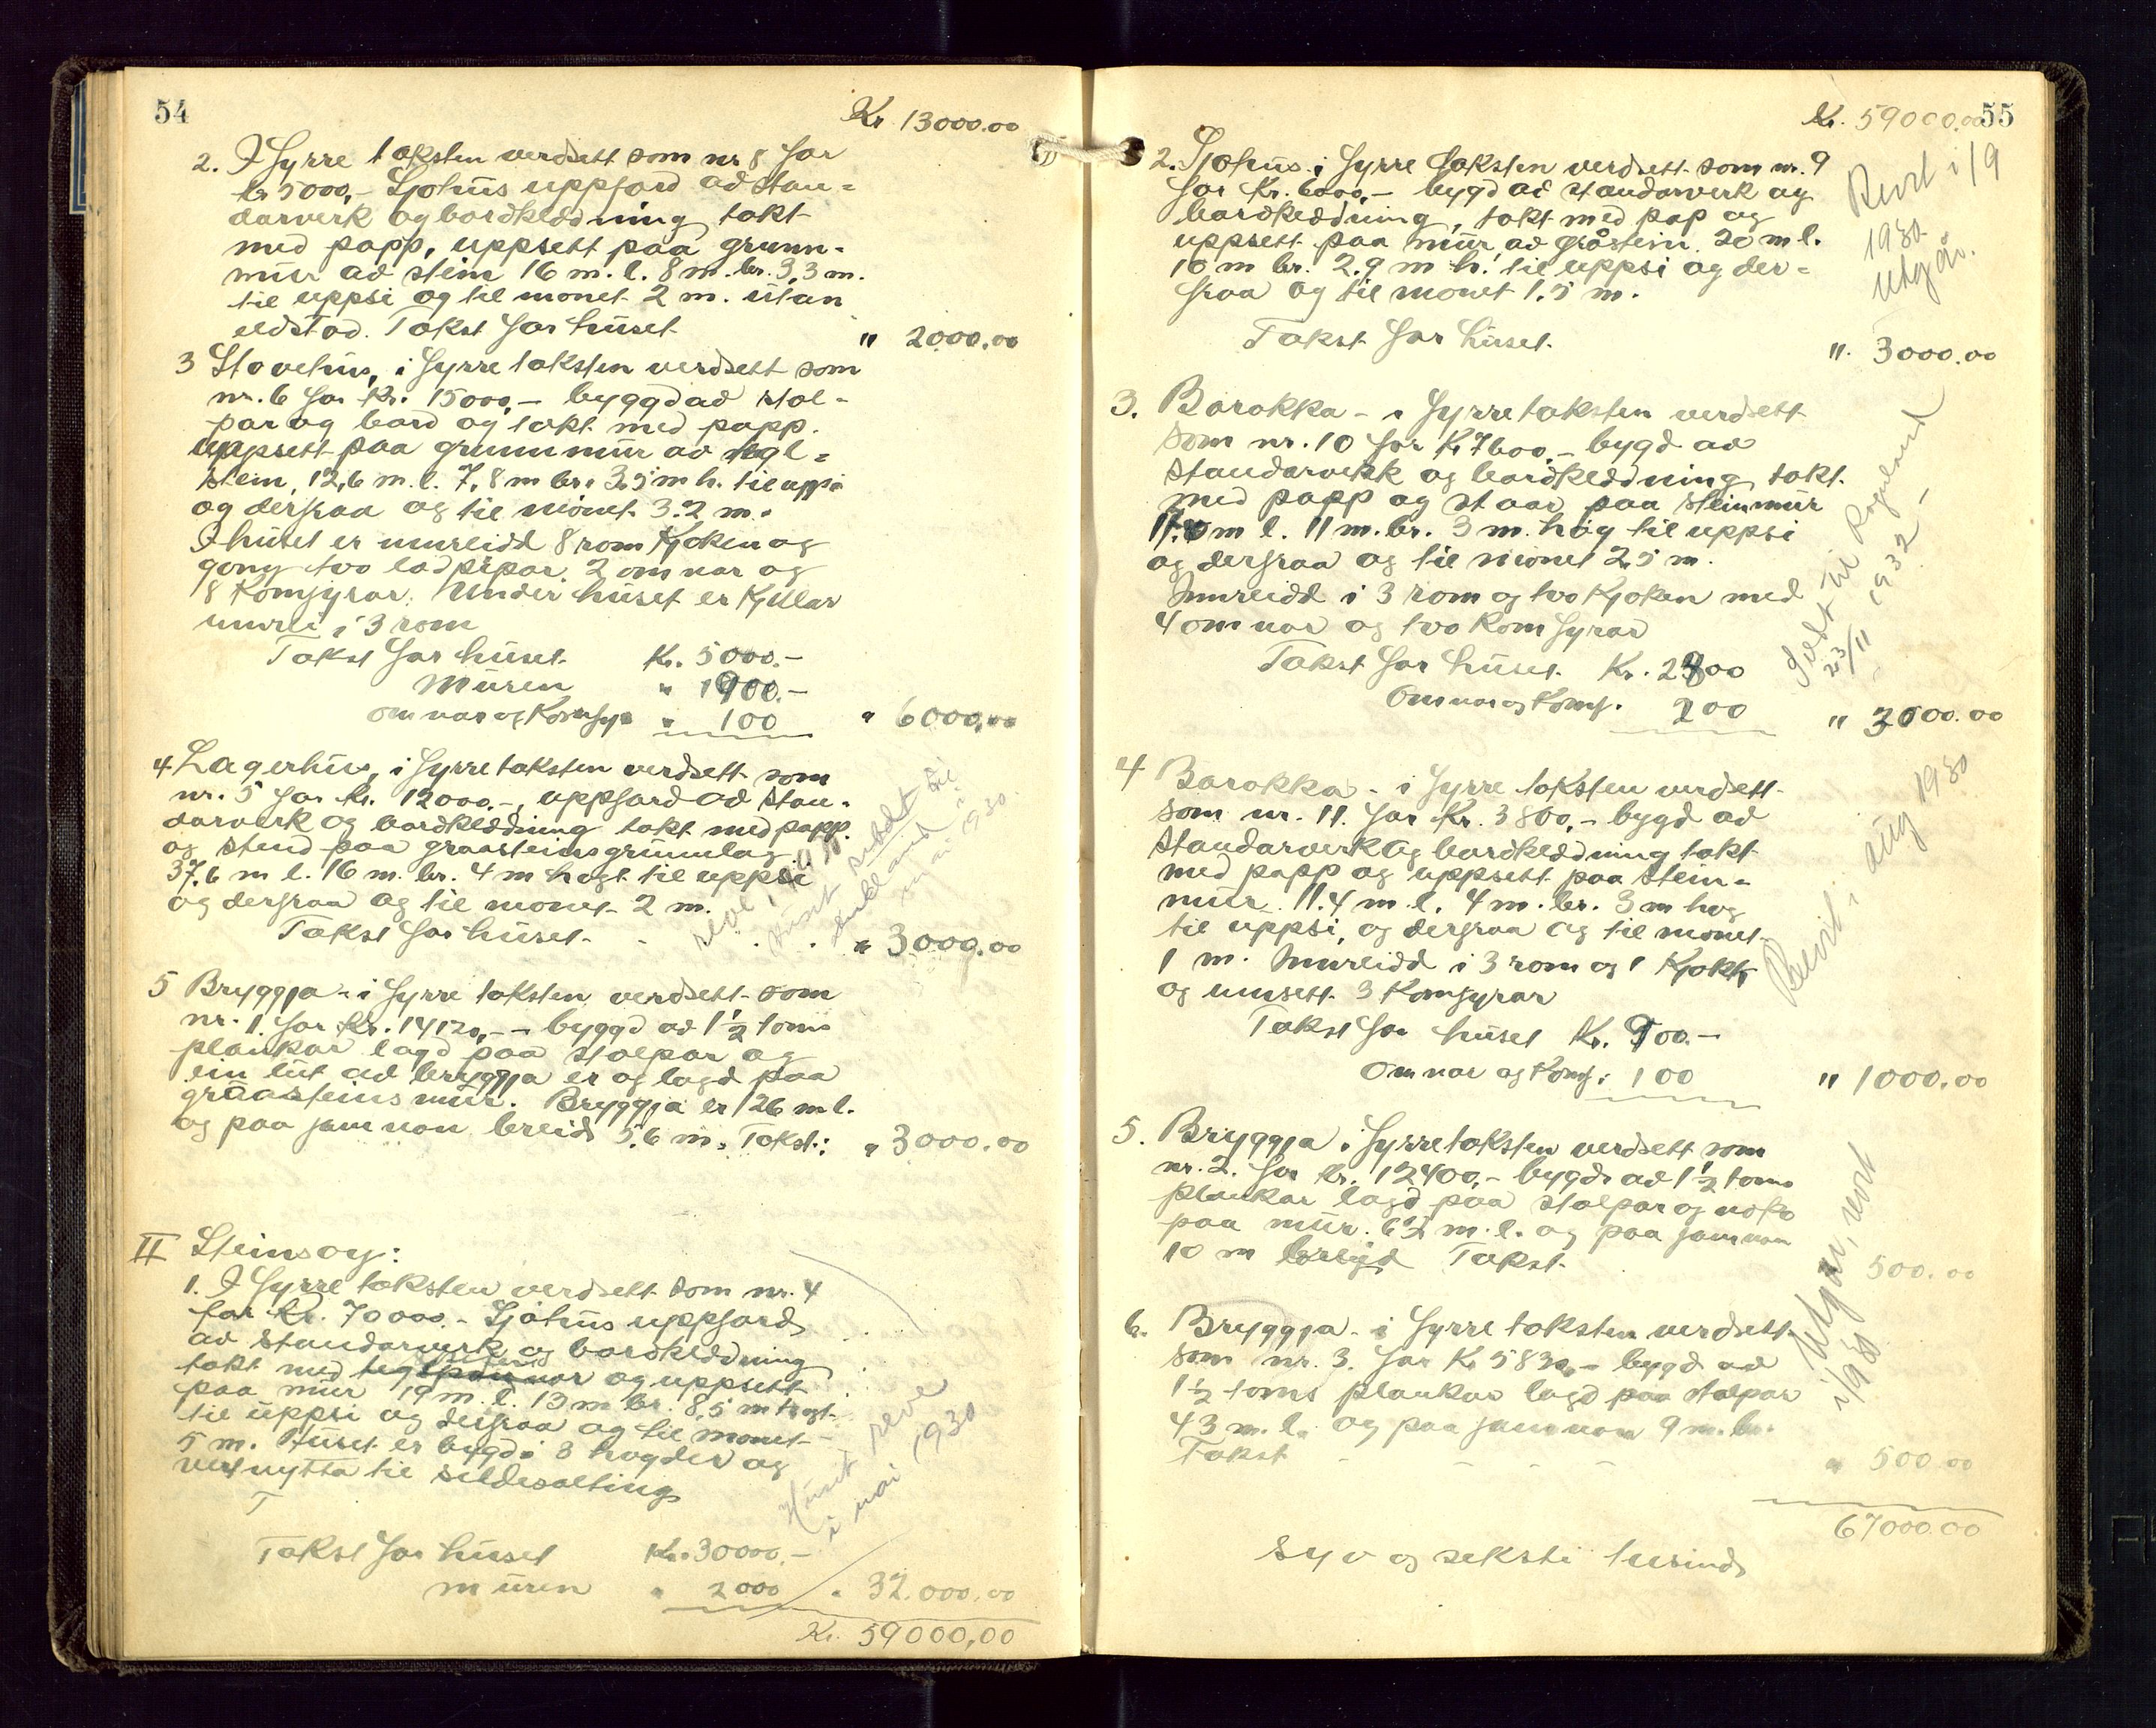 54
Kr 13000.00
2. I fyrre taksten verdsett som nr 8 for
kr 5000,- Sjøhus uppførd ad stan=
darverk og bordkledning takt
med papp, uppsett paa grunn-
mur ad stein 16 m. l. 8 m. br. 3,3 m.
til uppsi og til mønet 2 m. utan
eldstad. Takst for huset " 2000.00
3 Stovehus, i fyrre taksten verdsett som
nr. 6 for Kr. 15000,- byggd ad stol-
par og bord og takt med papp.
uppsett paa grunnmur av tegl=
stein, 12,6 m. l. 7,8 m br. 3,5 m h. til uppsi
og derfraa og til mønet 3.2 m.
I huset er innreidd 8 rom Kjøken og
gong tvo ladpipor, 2 omnar og
8 Komfyrar. Under huset er Kjellar
innreii 3 rom
Takst for huset Kr. 5000.-
Muren " 1900.-
omnar og Komfyr " 100 " 6000.00
4 Lagerhus, i fyrre taksten verdsett som
nr. 5 for kr. 12000.-, uppførd ad stan-
darverk og bordkledning takt med papp.
og stend paa graasteinsgrunnlag
37,6 m l. 16 m. br. 4 m høgt til uppsi
og derfraa og til mønet 2 m.
Takst for huset - . . " 3000.00
5 Bryggja - i fyrre taksten verdsett som
nr. 1. for Kr. 14120,- - byggd ad 1 1/2 toms
plankar lagd paa stolpar og
ein lut ad bryggja er og lagd paa
graasteinsmur. Bryggja er 126 m l.
og paa jamnan breid 5.6 m. Takst: " 3000.00
II Steinsøy:
1. I fyrre taksten verdsett som nr. 4
for Kr. 70000.- Sjøhus uppførd
av standarverk og bordkledning
takt med tegl og uppsett
paa mur 19 m. l. 13 m br. 8,5 m høgt
til uppsi og derfraa og til mønet
5 m. Huset er bygd i 3 høgder og
vert nytta til sildesalting
T
Huset reve
i mai 1930
Takst for huset Kr. 30000.-
muren " 2000 " 32.000.00
Kr. 59000,00
55
Kr. 59000.00
2. Sjøhus i fyrre taksten verdsett som nr. 9
for Kr. 6000,- bygd ad standarverk og
bordkledning, takt med pap og
uppsett paa mur ad gråstein. 20 m l.
10 m br. 2.9 m h. til uppsi og der=
fraa og til mønet 1.5 m.
Revet i 19
1930
Utgår.
Takst for huset. " 3000.00
3. Barakka - i fyrre taksten verdsett
som nr. 10 for Kr 7600,- bygd ad
standarverk og bordkledning takt
med papp og staar paa steinmur
17.0 m l. 11 m. br. 3 m. høg til uppsi
og derfraa og til mønet 2,5 m.
Innreidd i 3 rom og tvo Kjøken med
4 omnar og tvo Komfyrar
Selt til Rogaland
23/11 1932 -
Takst for huset Kr. 2800
Omnar og Komf. 200 " 3000.00
4 Barakka - i fyrre taksten verdsett
som nr. 11. for Kr. 3800,- bygd ad
standarverk og bordkledning takt
med papp og uppsett paa stein-
mur. 11.4 m. l. 4 m. br. 3 m høg
til uppsi, og derfraa og til mønet
1 m. Innreidd i 3 rom og 1 Kjøk.
og innsett 3 Komfyrar
Revet i aug 1930
Takst for huset Kr. 900.-
Omnar og Komf. 100 " 1000.00
5. Bryggja i fyrre taksten verdsett som
nr. 2. for kr. 12400,- bygd ad 1 1/2 toms
plankar lagd paa stolpar og noko
paa mur. 62 m. l. og paa jamnan
10 m breid Takst 500.00
6. Bryggja - i fyrre taksten verdsett
som nr. 3. for Kr 5830,- bygd ad
1 1/2 toms plankar lagd paa stolpar
43 m. l. og paa jamnan 9 m. br.
Utgår, revet
i 1930
Takst - - - - " 500.00
67000.00
Syv og seksti tusind